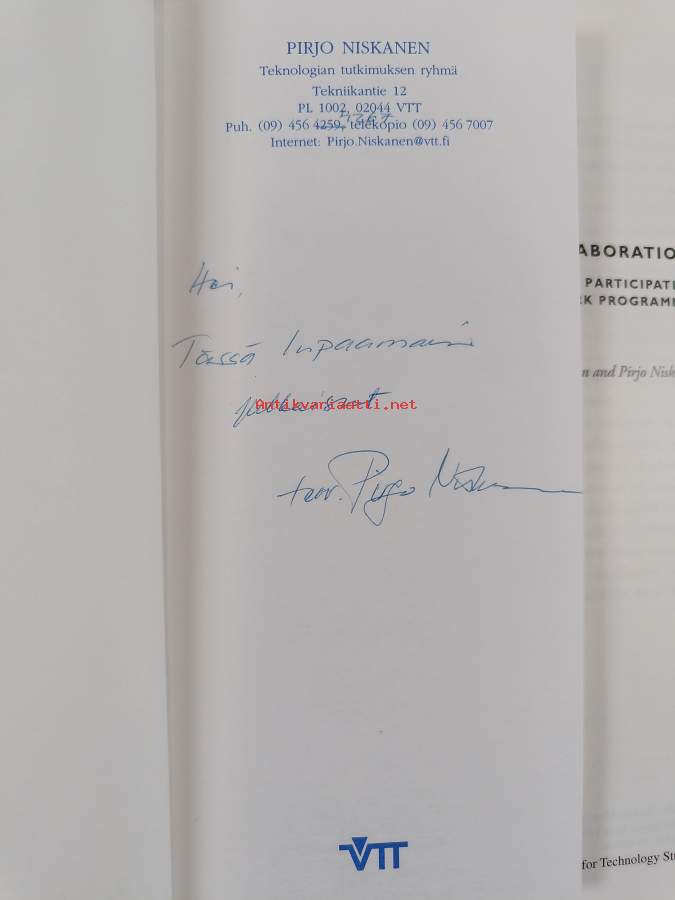 PIRJO NISKANEN
Teknologian tutkimuksen ryhmä
Tekniikantie 12
PL 1002, 02044 VTT
Puh. (09) 456 4259, telekopio (09) 456 7007
Internet: Pirjo.Niskanen@vtt.fi
Hei,
Tässä lupaamani
julkaisut
Antikvariaatti.net
terv. Pirjo Niskanen
VTT
ABORATIO
PARTICIPATI
K PROGRAMM
n and Pirjo Nisk
for Technology Stu